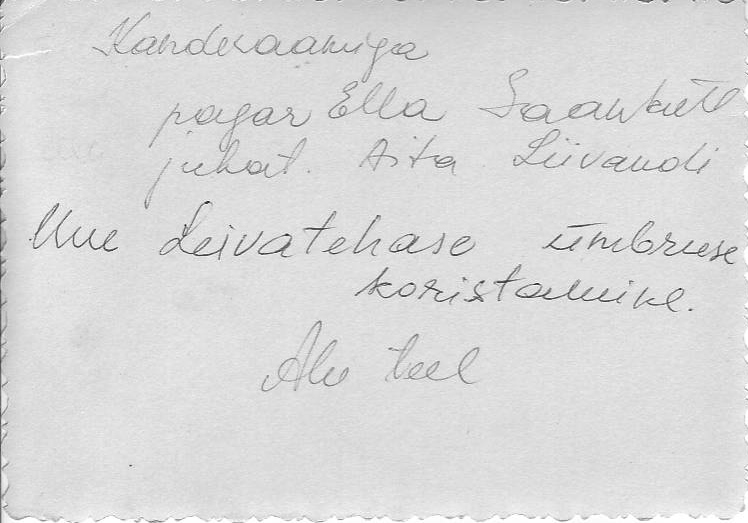 Kanderaamiga
pagar Ella Saankütt
juhat. Aita Liivandi
Uue Leivatehase ümbruse
koristamine.
Alu teel